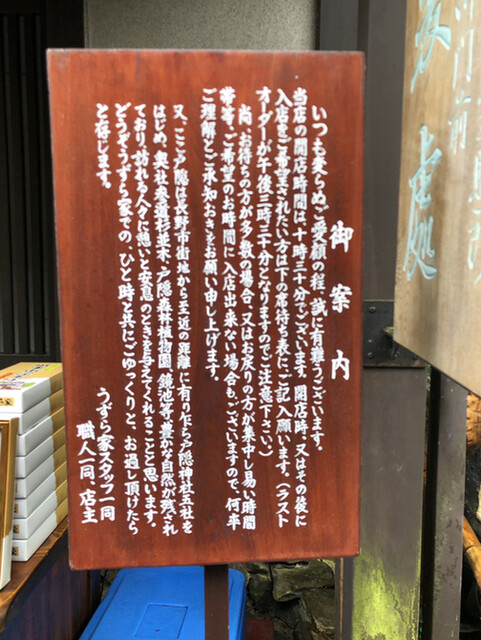 御案内
いつも変らぬご愛顧の程、誠に有難うございます。
当店の開店時間は、十時三十分でございます。開店時、又はその後に
入店をご希望されたい方は下の席待ち表にご記入願います。(ラスト
オーダーが午後三時三十分となりますのでご注意下さい)
尚、お待ちの方が多数の場合、又はお戻りの方が集中し易い時間
帯等、ご希望のお時間に入店出来ない場合もございますので、何卒
ご理解とご承知おきをお願い申し上げます。
又、ここ戸隠は長野市街地から至近の距離に有り乍ら戸隠神社五社を
はじめ、奥社参道杉並木、戸隠森林植物園、鏡池等豊かな自然が残され
ており訪れる人々に憩いと安息のときを与えてくれることと思います。
どうぞうずら家でのひと時と共にごゆっくりと、お過し頂けたら
と存じます。
うずら家スタッフ一同
職人一同、店主
門前
処